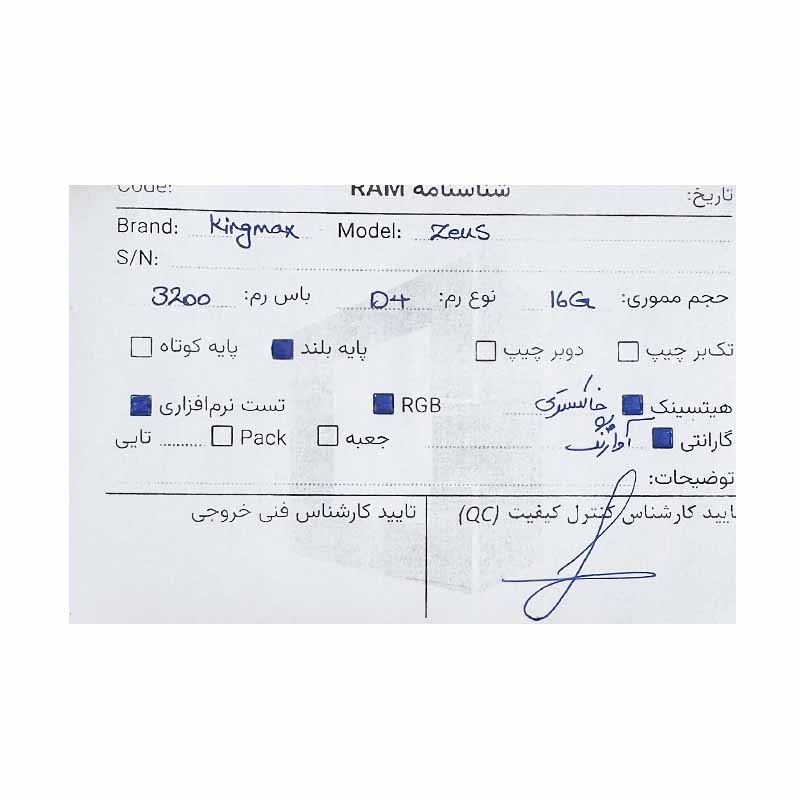 تاریخ: شناسنامه RAM Code:
Brand: Kingmax Model: Zeus
S/N:
حجم مموری: 16G نوع رم: D4 باس رم: 3200
تک‌بر چیپ دوبر چیپ پایه بلند پایه کوتاه
هیتسینک خاکستری RGB تست نرم‌افزاری
گارانتی آواژنگ جعبه Pack تایی
توضیحات:
تایید کارشناس کنترل کیفیت (QC) تایید کارشناس فنی خروجی